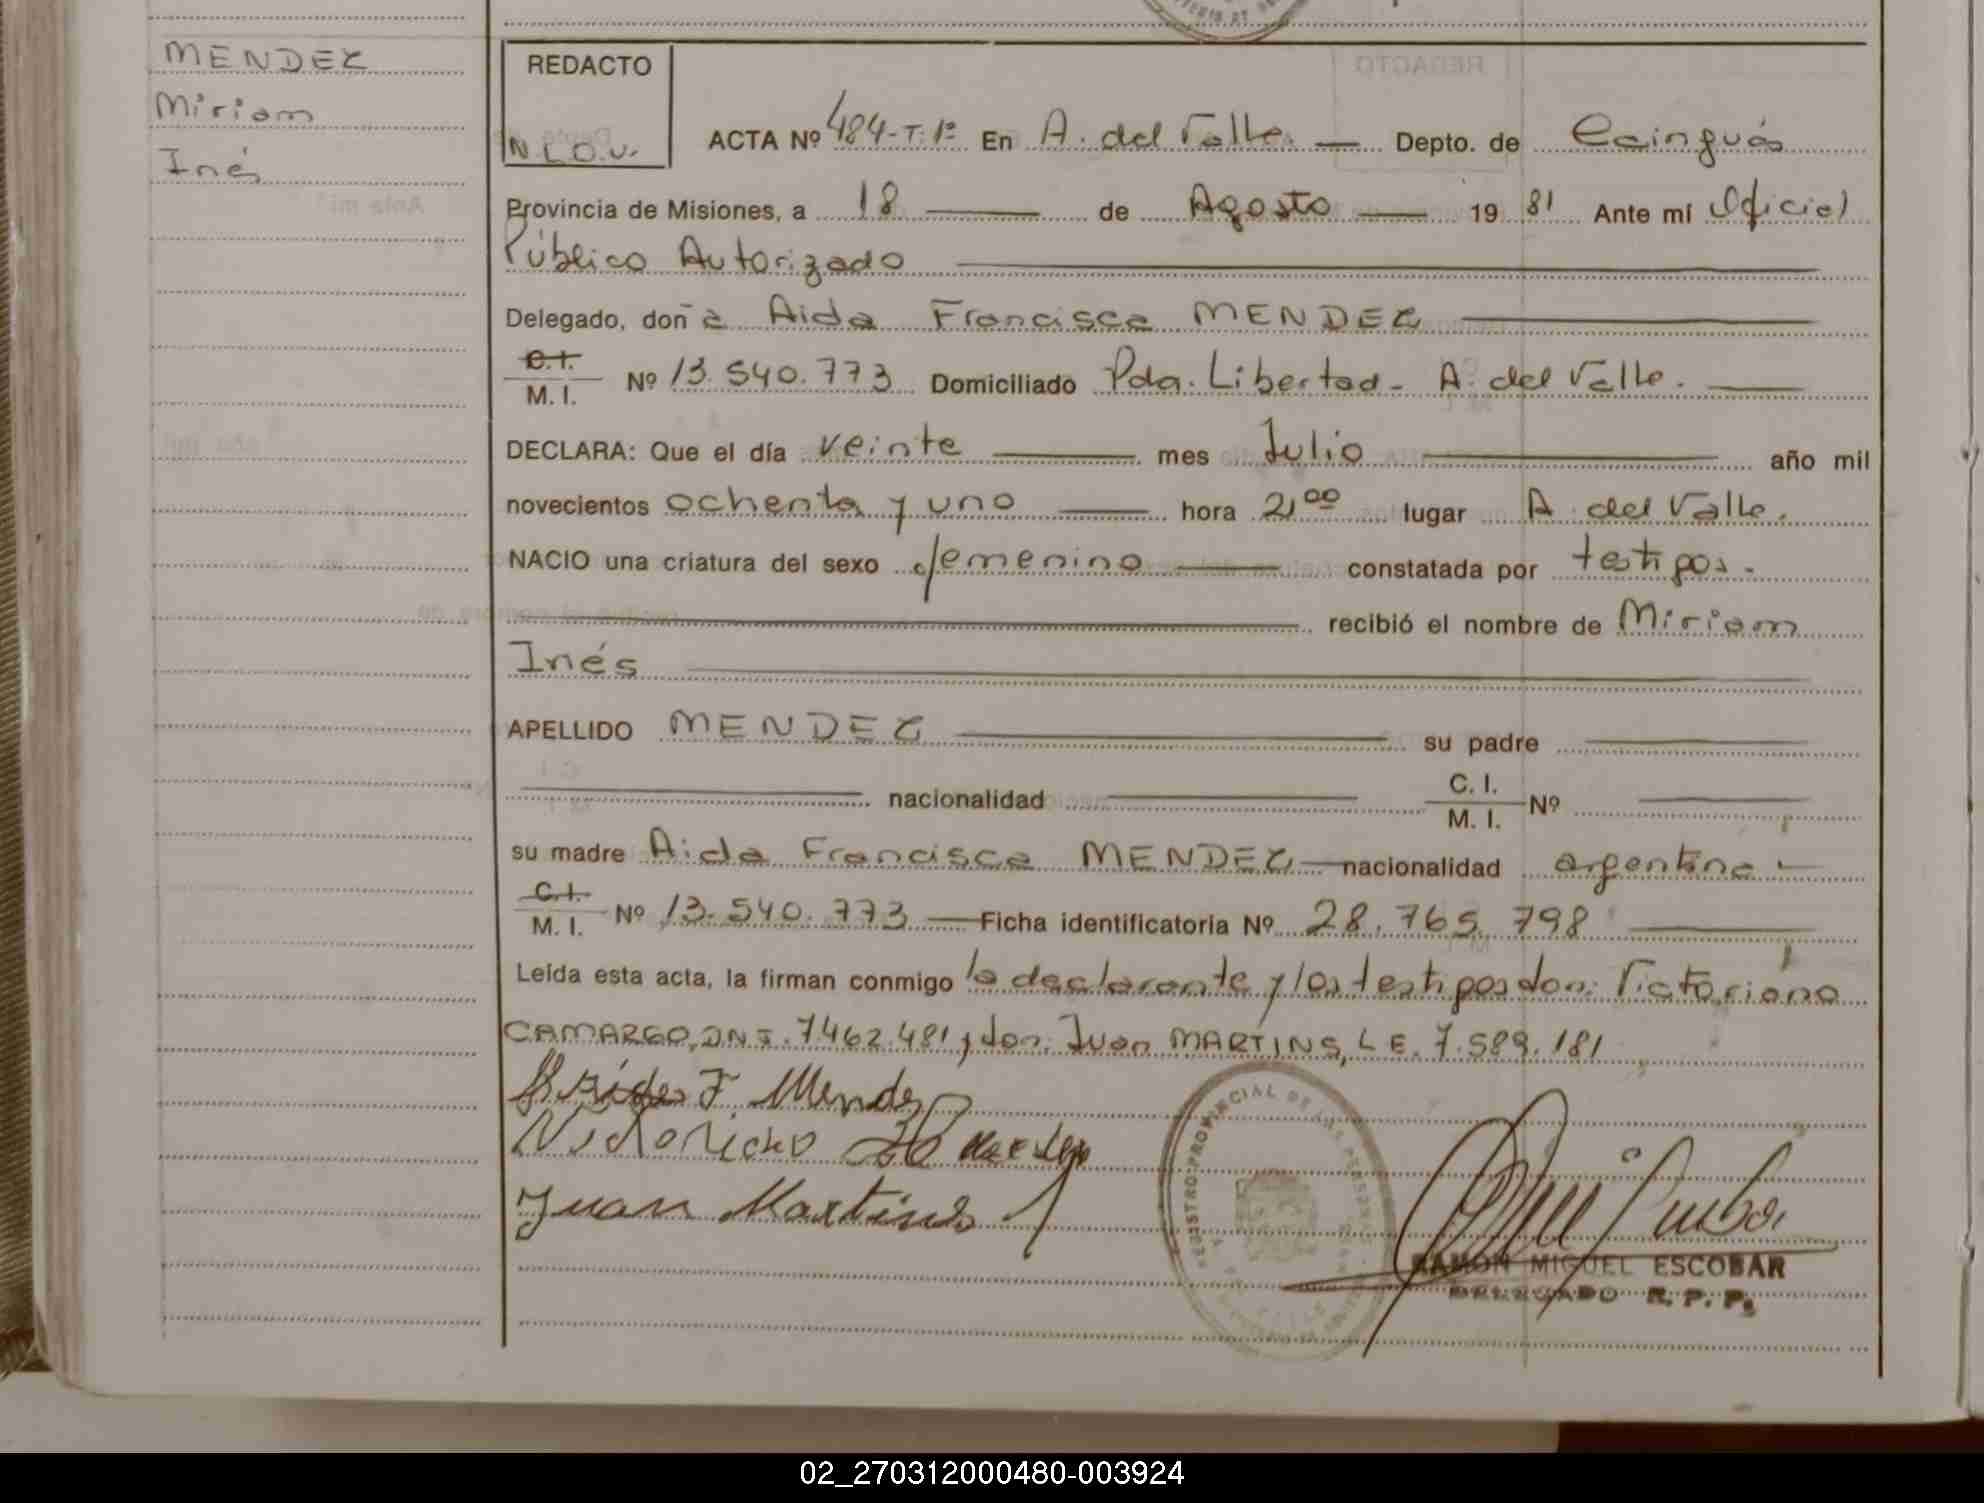 MENDEZ
Miriam
Inés
REDACTO
N.L.O.V.
ACTA Nº 484-T:1º En A. del Valle. Depto. de Cainguás
Provincia de Misiones, a 18 de Agosto 19 81 Ante mí Oficial
Público Autorizado
Delegado, doña Aida Francisca MENDEZ
C.I.
M. I. Nº 13.540.773 Domiciliado Pda. Libertad - A. del Valle.
DECLARA: Que el día veinte mes Julio año mil
novecientos ochenta y uno hora 21⁰⁰ lugar A del Valle.
NACIO una criatura del sexo femenino constatada por testigos.
recibió el nombre de Miriam
Inés
APELLIDO MENDEZ su padre
nacionalidad C. I.
M. I. Nº
su madre Aida Francisca MENDEZ nacionalidad argentina
C.I.
M. I. Nº 13.540.773 Ficha identificatoria Nº 28.765.798
Leída esta acta, la firman conmigo la declarante y los testigos don: Victoriano
CAMARGO, DNI. 7.462.481 y don: Juan MARTINS, L E. 7.589.181
F. Mendez
Juan Martins
REGISTRO PROVINCIAL DE LAS PERSONAS
RAMON MIGUEL ESCOBAR
DELEGADO R. P. P.
02_270312000480-003924